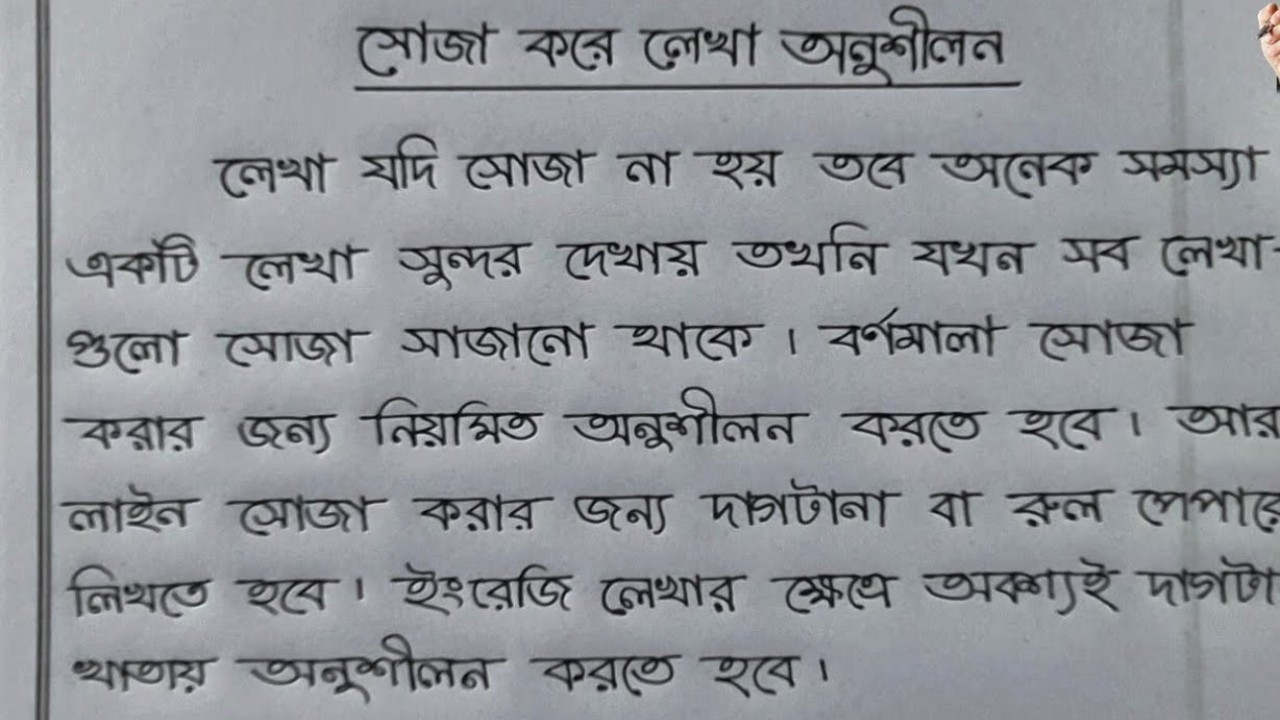 সোজা করে লেখা অনুশীলন
লেখা যদি সোজা না হয় তবে অনেক সমস্যা
একটি লেখা সুন্দর দেখায় তখনি যখন সব লেখা-
গুলো সোজা সাজানো থাকে । বর্ণমালা সোজা
করার জন্য নিয়মিত অনুশীলন করতে হবে । আর
লাইন সোজা করার জন্য দাগটানা বা রুল পেপারে
লিখতে হবে । ইংরেজি লেখার ক্ষেত্রে অবশ্যই দাগটা
খাতায় অনুশীলন করতে হবে ।